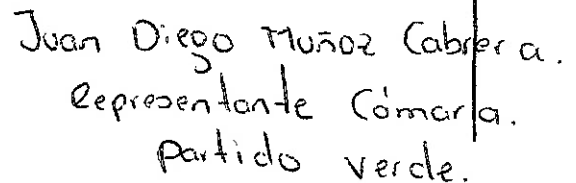 Juan Diego Muñoz Cabrera.
Representante Cámara.
Partido verde.